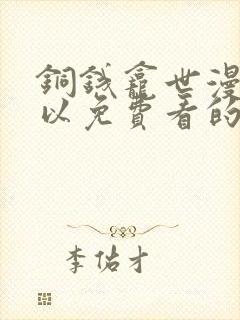 銅錢龕世漫
以免費看的
李佑才